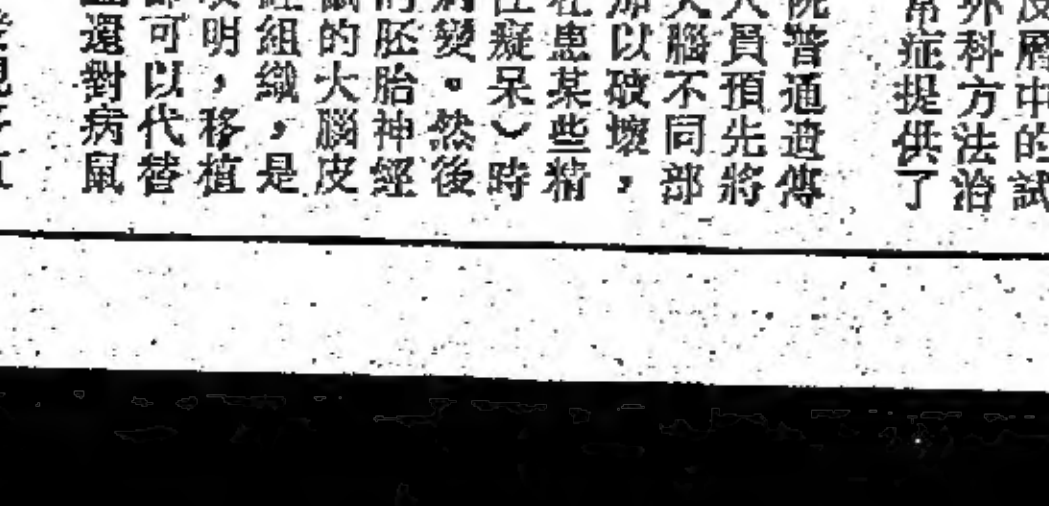 中的試
外科方法治
症提供了
普通遺傳
人員預先將
大腦不同部
加以破壞，
患某些精
癡呆）時
病變。然後
的胚胎神經
鼠的大腦皮
經組織，是
明，移植
可以代替
還對病鼠